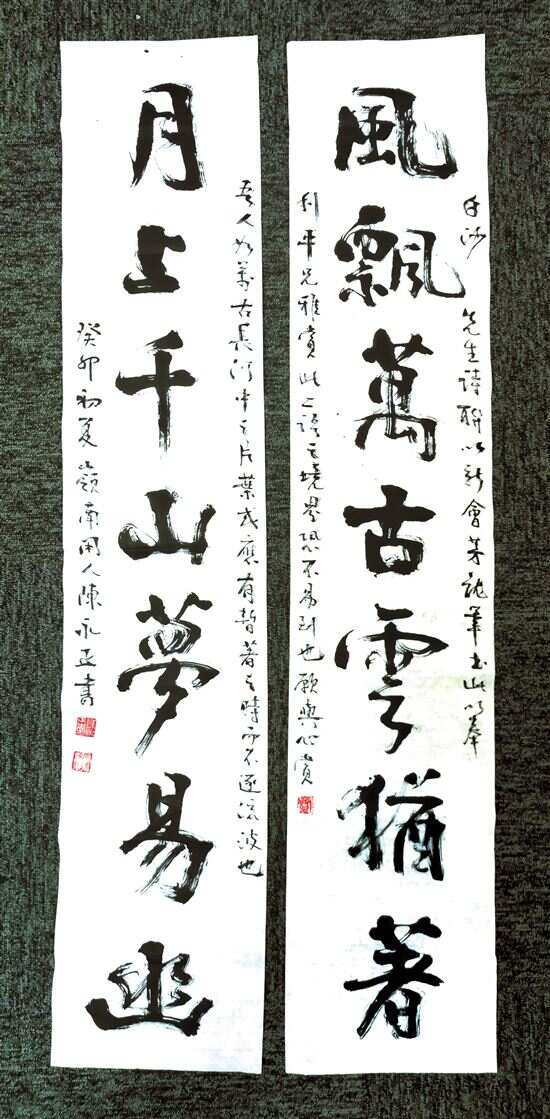 白沙 先生詩聯以新會茅龍筆書此以奉
風飄萬古雲猶著
利平兄雅賞此上語之境界恐不易到也願與心賞
吾人如萬古長河中之片葉或應有暫著之時而不逐流波也
月上千山夢易幽
癸卯初夏嶺南閒人陳永正書